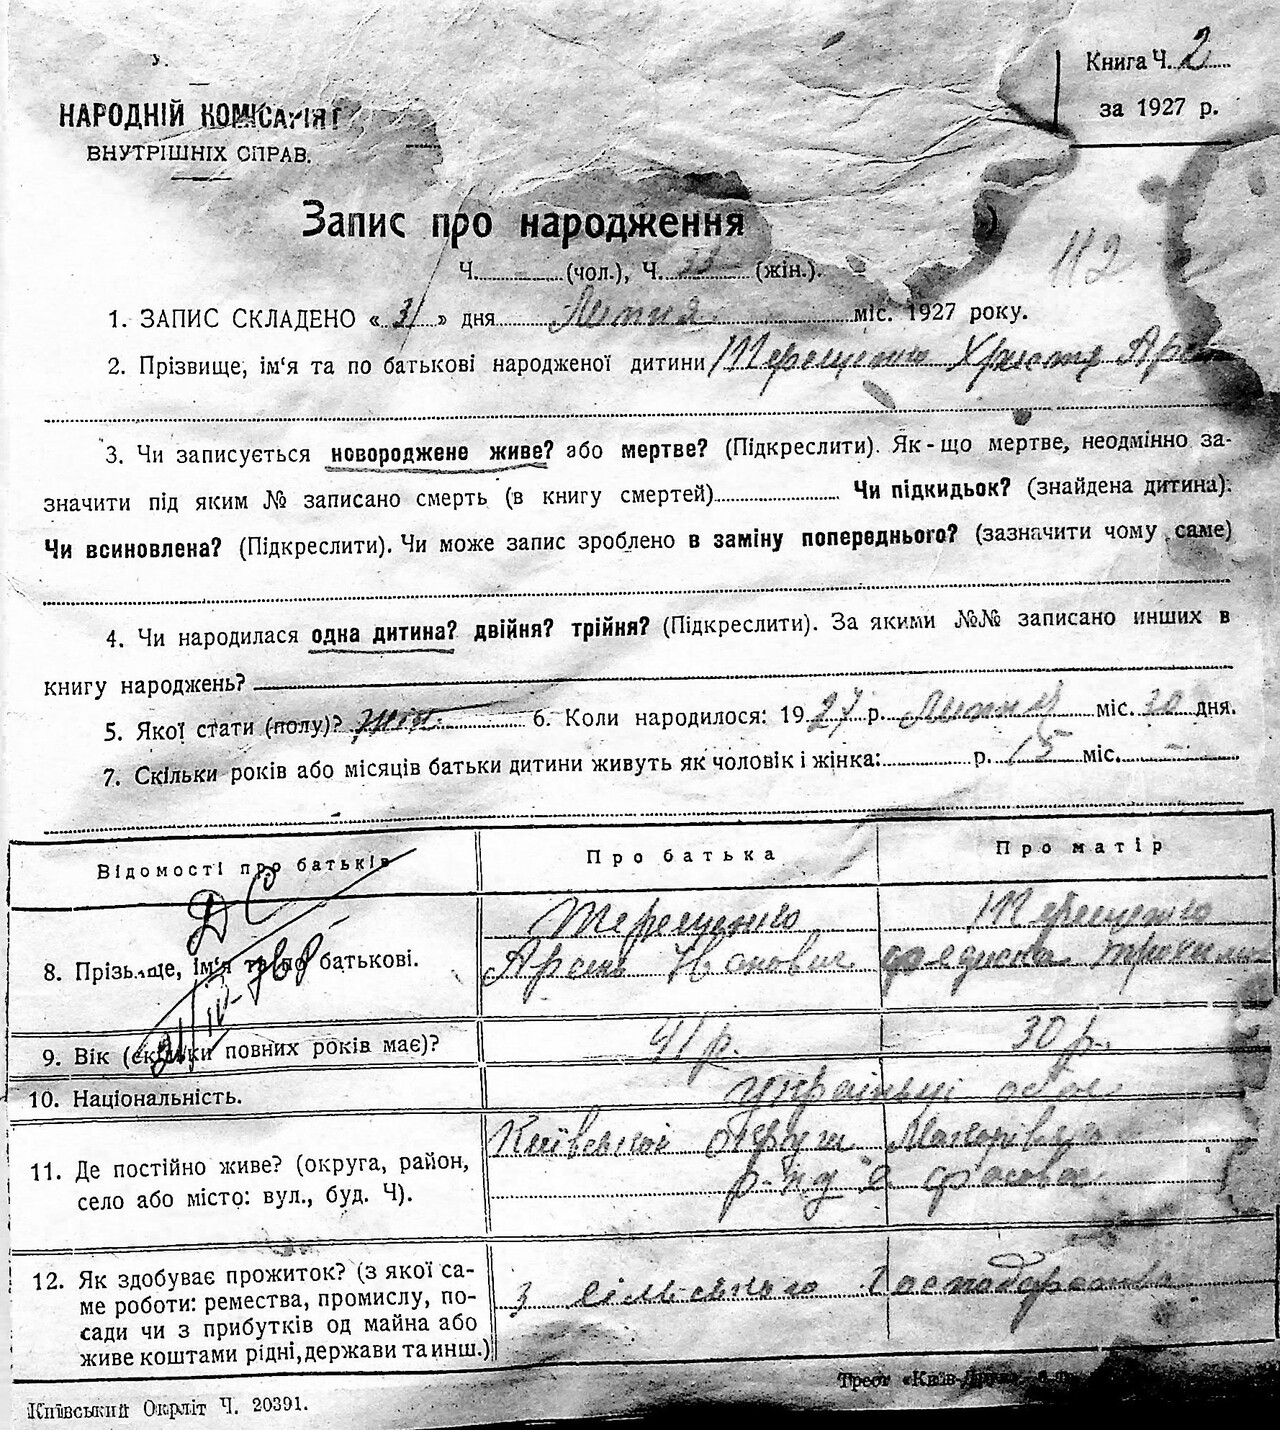 У.
НАРОДНІЙ КОМІСАРІЯТ
ВНУТРІШНІХ СПРАВ.
Книга Ч. 2
за 1927 р.
Запис про народження
112
Ч. (чол.), Ч. 33 (жін.).
1. ЗАПИС СКЛАДЕНО «31» дня Липня міс. 1927 року.
2. Прізвище, ім'я та по батькові народженої дитини Терещенко Христя Арс
3. Чи записується новороджене живе? або мертве? (Підкреслити). Як-що мертве, неодмінно за-
значити під яким № записано смерть (в книгу смертей) Чи підкидьок? (знайдена дитина).
Чи всиновлена? (Підкреслити). Чи може запис зроблено в заміну попереднього? (зазначити чому саме)
4. Чи народилася одна дитина? двійня? трійня? (Підкреслити). За якими №№ записано инших в
книгу народжень?
5. Якої стати (полу)? жін. 6. Коли народилося: 1927 р. Липня міс. 30 дня.
7. Скільки років або місяців батьки дитини живуть як чоловік і жінка: р. 15 міс.
Відомості про батьків Про батька Про матір
8. Прізвище, ім'я та по батькові. Терещенко Терещенко
Арсень Іванович
9. Вік (скільки повних років має)? 41 р. 30 р.
10. Національність. українці обоє
11. Де постійно живе? (округа, район, Київської округи Макарівськ
село або місто: вул., буд. Ч). р-ну с Фасова
12. Як здобуває прожиток? (з якої са- З сільського господарства
ме роботи: ремества, промислу, по-
сади чи з прибутків од майна або
живе коштами рідні, держави та инш.)
Київський Окрліт Ч. 20391.
Трест «Київ-Друк»